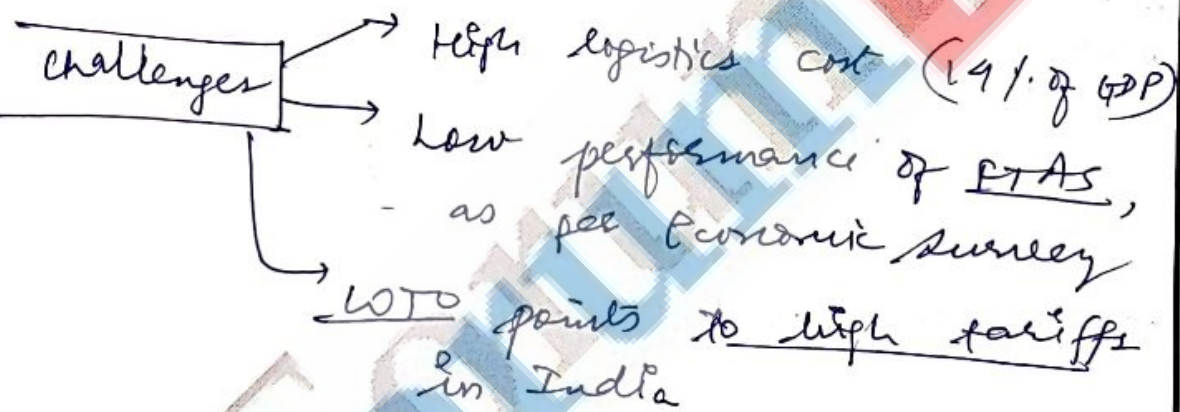 challenges
High logistics cost (14% of GDP)
Low performance of FTAs,
- as per Economic Survey
WTO points to high tariffs
in India